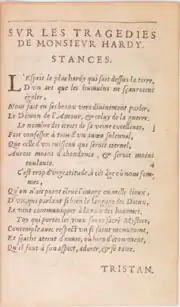 SVR LES TRAGEDIES
DE MONSIEVR HARDY.
STANCES.
L'Esprit le plus hardy qui soit dessus la terre,
D'un art que les humains ne sçauroient
égaler,
Nous fait en ses beaux vers divinement parler,
Le Démon de l'Amour, & celuy de la guerre.
Le nombre des écrits de sa veine excellente,
Fait confesser à tous d'un vœu solennel,
Que celle d'un ruisseau qui seroit eternel,
Auroit moins d'abondance, & seroit moins
coulante.
C'est trop d'ingratitude à cét âge où nous sommes,
Qu'on n'ait point élevé l'image en mille lieux,
D'un, qui parlant si bien le langage des Dieux,
Le vient communiquer à la voix des hommes.
Toy qui portes les yeux sur ce sacré Mystere,
Contemple avec respect un si saint monument,
Et sçache atteint d'amour, ou bien d'étonnement,
Qu'il faut à son aspect, adorer, & se taire.
TRISTAN.